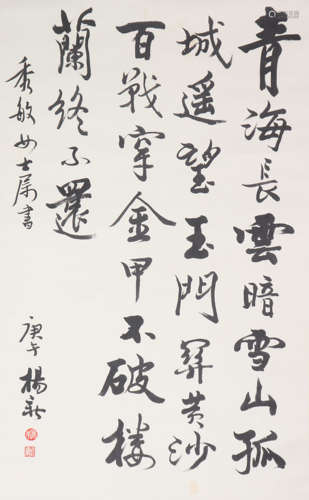 青海長雲暗雪山孤
城遥望玉門關黃沙
百戰穿金甲不破樓
蘭終不還
秀敏女士属書
庚午楊新